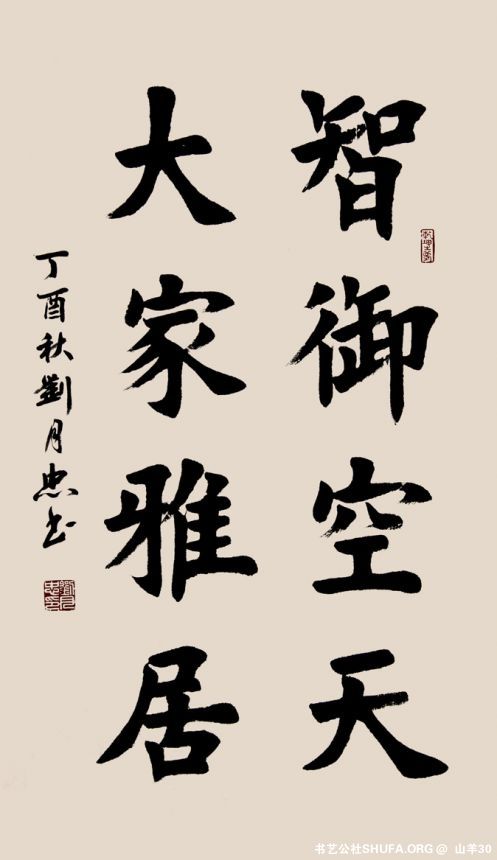 智御空天
大家雅居
丁酉秋劉月忠书
书艺公社SHUFA.ORG @ 山羊30